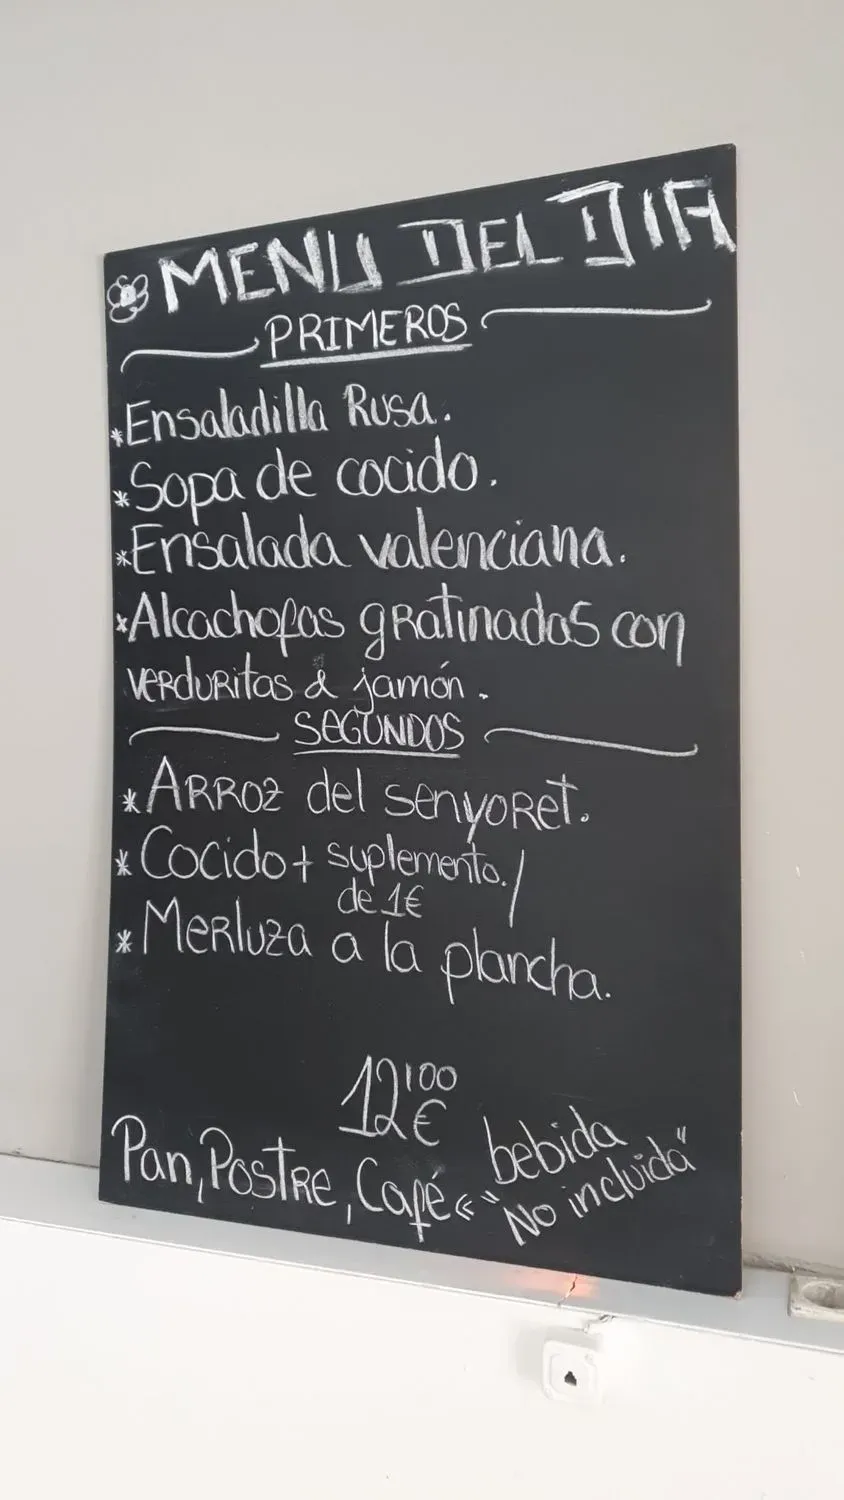 MENU DEL DIA
PRIMEROS
*Ensaladilla Rusa.
*Sopa de cocido.
*Ensalada valenciana.
*Alcachofas gratinadas con
verduritas & jamón.
SEGUNDOS
*Arroz del senyoret.
*Cocido + suplemento./
de 1€
*Merluza a la plancha.
12'00€
Pan, Postre, Café << "bebida
No incluida"